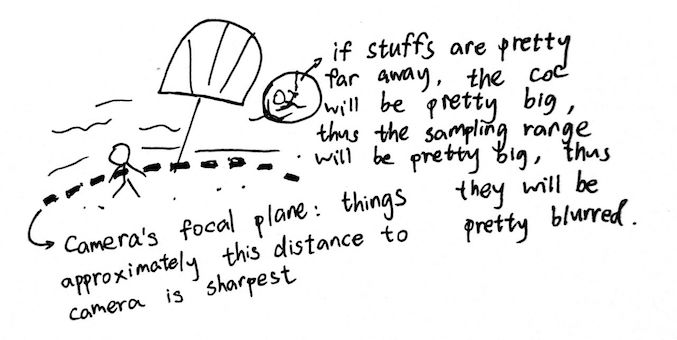 if stuffs are pretty
far away, the CoC
will be pretty big,
thus the sampling range
will be pretty big, thus
they will be
pretty blurred.
Camera's focal plane: things
approximately this distance to
camera is sharpest